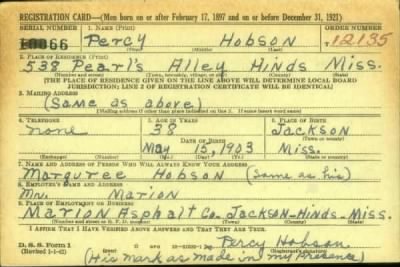 REGISTRATION CARD—(Men born on or after February 17, 1897 and on or before December 31, 1921)
SERIAL NUMBER 1. NAME (Print) ORDER NUMBER
Percy Hobson 12135
2. PLACE OF RESIDENCE (Print)
538 Pearl's Alley Hinds Miss.
(Number and street) (Town, township, village, or city) (County) (State)
[THE PLACE OF RESIDENCE GIVEN ON THE LINE ABOVE WILL DETERMINE LOCAL BOARD
JURISDICTION; LINE 2 OF REGISTRATION CERTIFICATE WILL BE IDENTICAL]
3. MAILING ADDRESS
(Same as above)
(Mailing address if other than place indicated on line 2. If same insert word same)
4. TELEPHONE 5. AGE IN YEARS 6. PLACE OF BIRTH
none 38 Jackson
DATE OF BIRTH (Town or county)
May 15, 1903 Miss.
(State or country)
7. NAME AND ADDRESS OF PERSON WHO WILL ALWAYS KNOW YOUR ADDRESS
Marguree Hobson (same as his)
8. EMPLOYER'S NAME AND ADDRESS
Mr. Marion
9. PLACE OF EMPLOYMENT OR BUSINESS
Marion Asphalt Co. Jackson-Hinds-Miss.
(Number and street or R. F. D. number) (Town) (County) (State)
I AFFIRM THAT I HAVE VERIFIED ABOVE ANSWERS AND THAT THEY ARE TRUE.
D. S. S. Form 1 Percy Hobson
(Revised 1-1-42) (Registrant's signature)
(His mark as made in my presence)